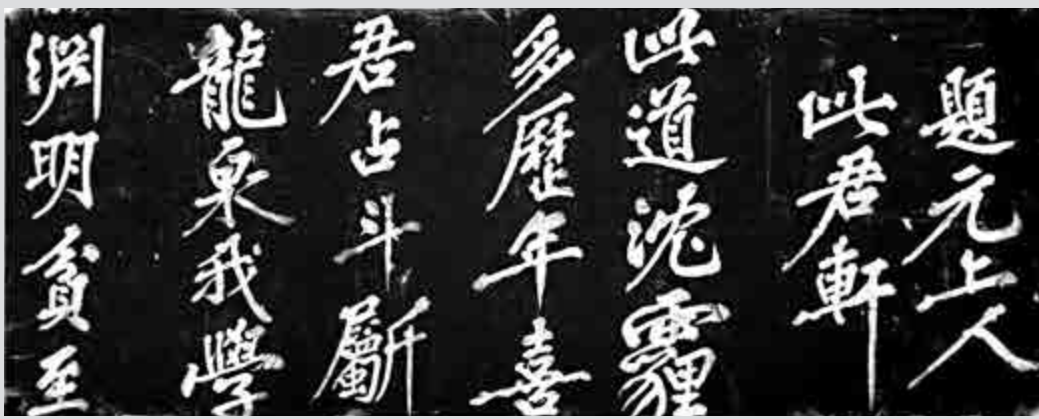 題元上人
此君軒
此道沈霾
多歷年喜
君占斗斸
龍泉我學
淵明貧至